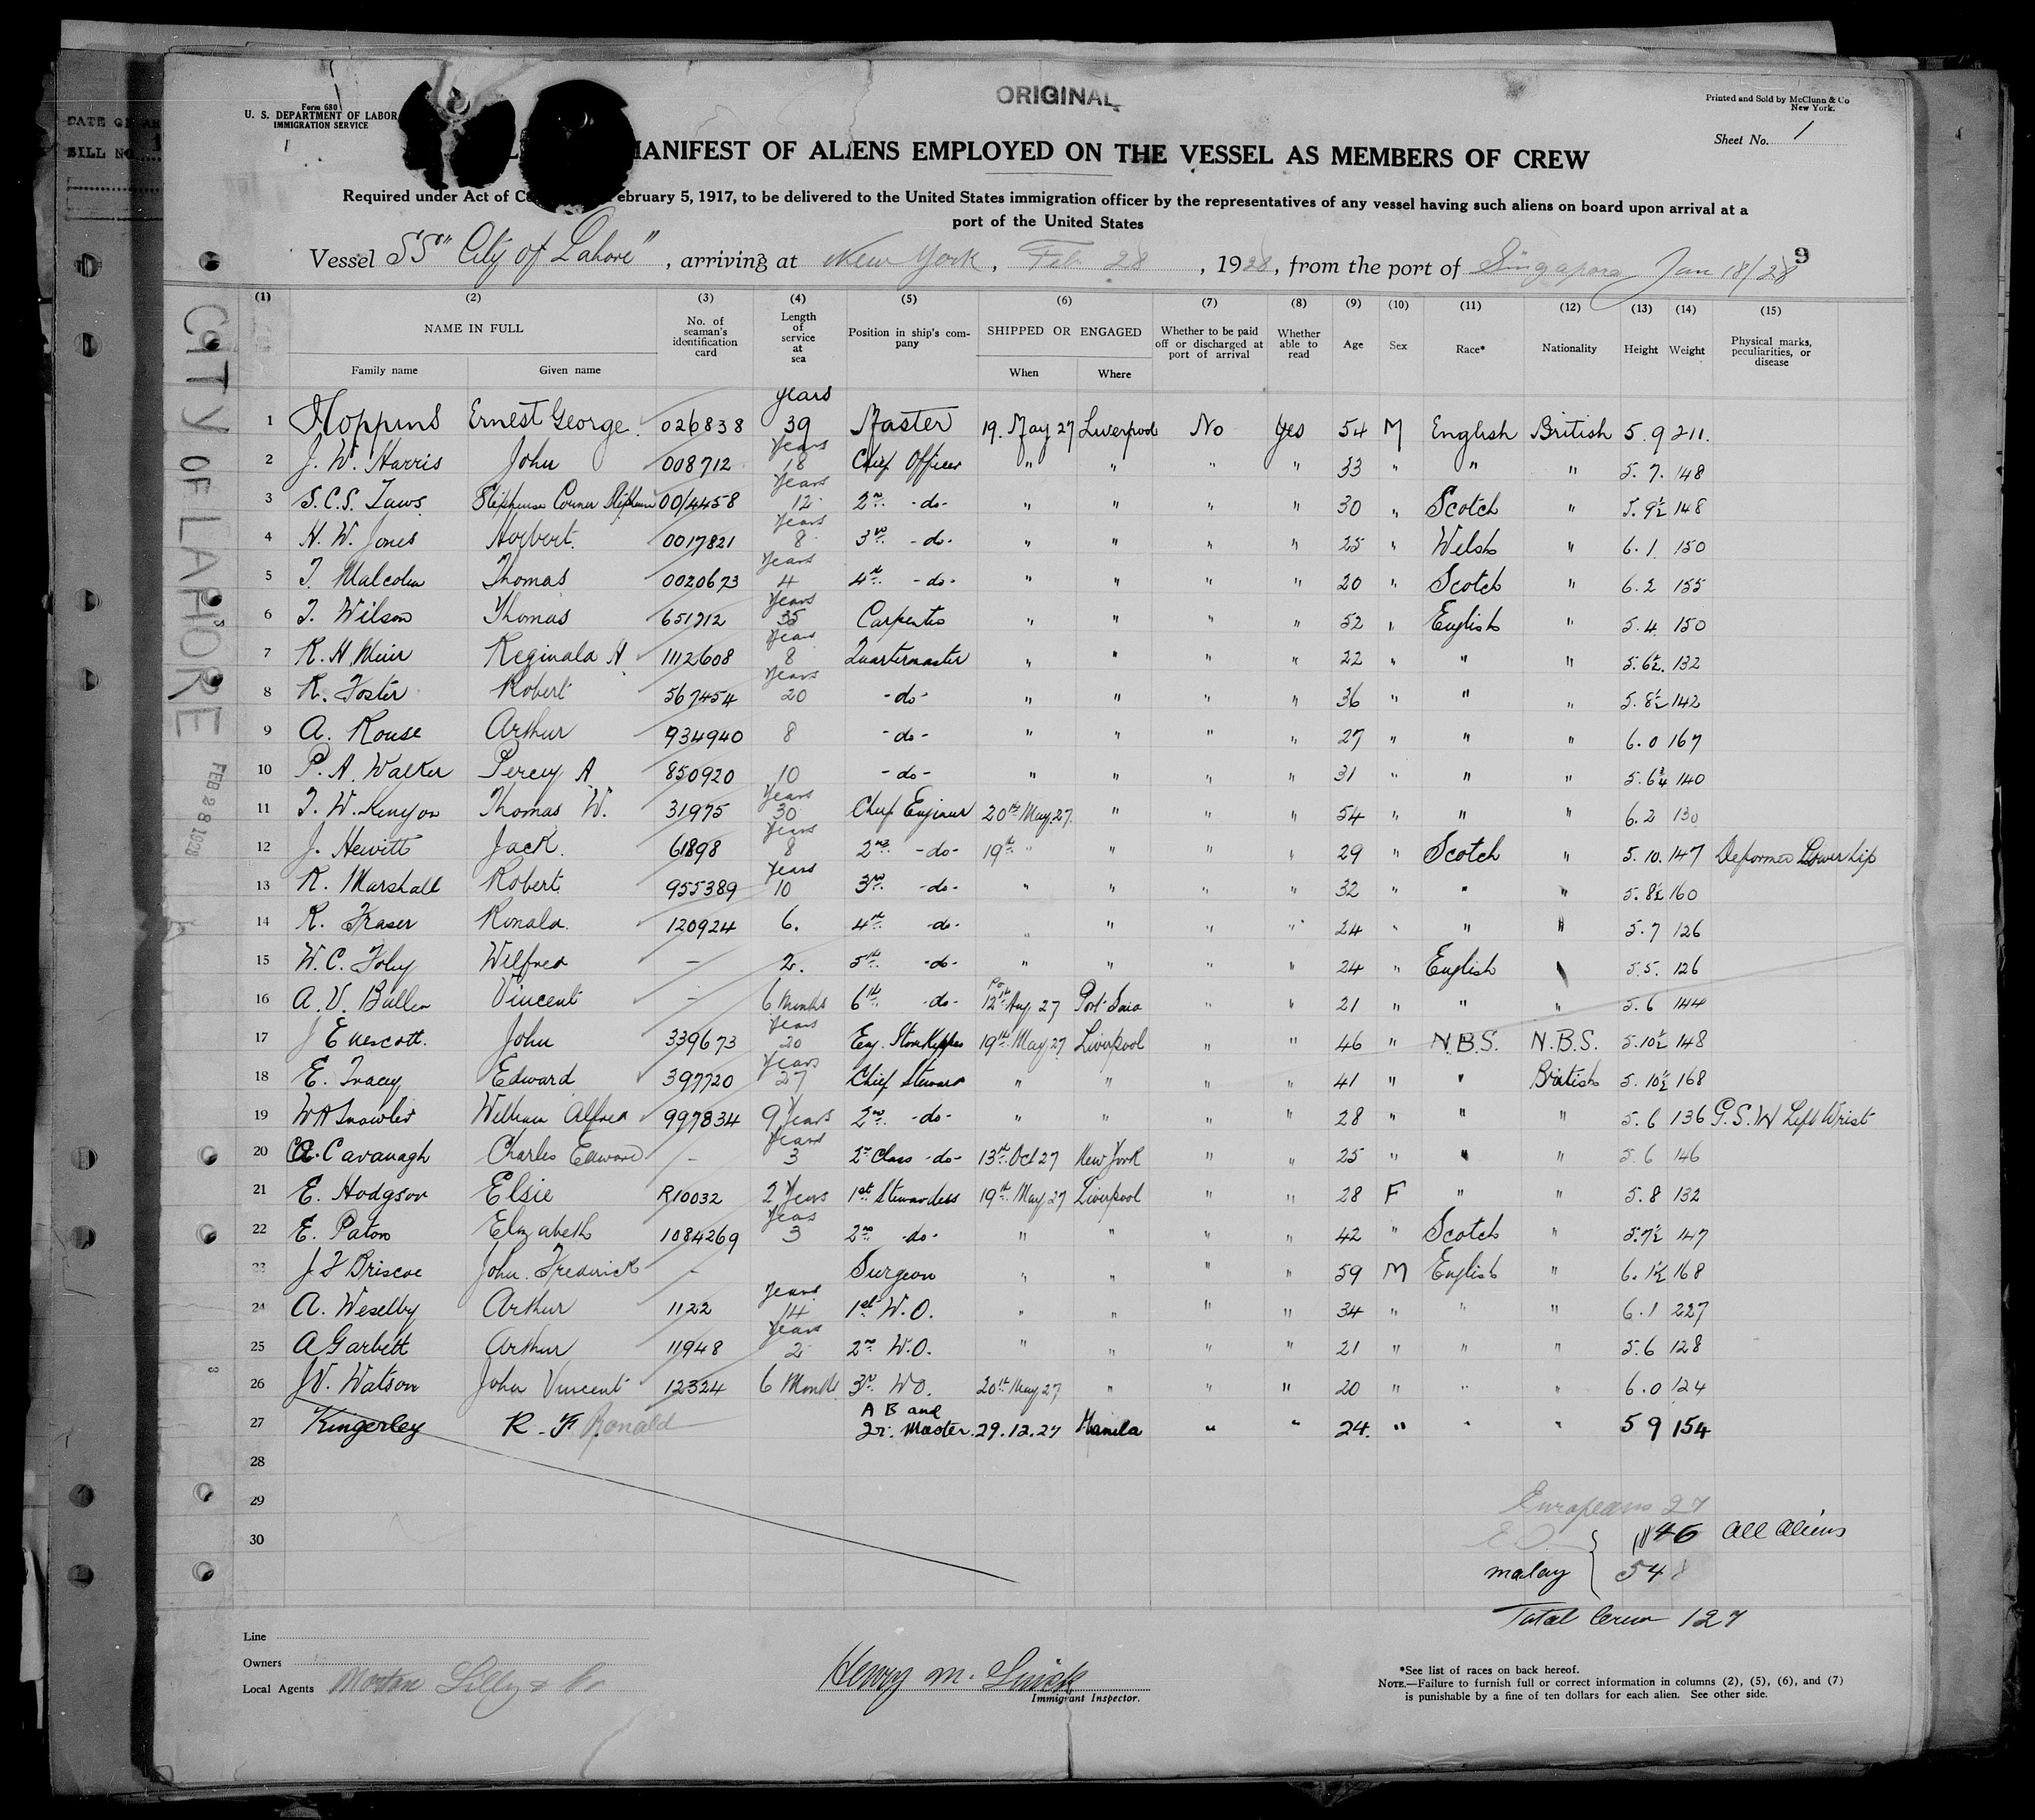 ORIGINAL
Form 680
U. S. DEPARTMENT OF LABOR
IMMIGRATION SERVICE
Printed and Sold by McClunn & Co
New York.
Sheet No. 1
MANIFEST OF ALIENS EMPLOYED ON THE VESSEL AS MEMBERS OF CREW
Required under Act of February 5, 1917, to be delivered to the United States immigration officer by the representatives of any vessel having such aliens on board upon arrival at a
port of the United States
Vessel SS "City of Lahore", arriving at New York, Feb 28, 1928, from the port of Singapore Jan 18/28
9
(1) (2) (3) (4) (5) (6) (7) (8) (9) (10) (11) (12) (13) (14) (15)
NAME IN FULL Family name Given name No. of seaman's identification card Length of service at sea Position in ship's company SHIPPED OR ENGAGED When Where Whether to be paid off or discharged at port of arrival Whether able to read Age Sex Race* Nationality Height Weight Physical marks, peculiarities, or disease
1 Hoppins Ernest George 026838 39 years Master 19. May 27 Liverpool No Yes 54 M English British 5. 9 211.
2 J. W. Harris John 008712 18 Years Chief Officer " " " " 33 " " " 5. 7. 148
3 S.C.S. Laws Stephenson 0014458 12 Years 2nd -do- " " " " 30 " Scotch " 5. 9½ 148
4 H. W. Jones Herbert. 0017821 8 Years 3rd -do- " " " " 25 " Welsh " 6. 1. 150
5 T. Malcolm Thomas 0020673 4 Years 4th -do- " " " " 20 " Scotch " 6. 2 155
6 T. Wilson Thomas 651712 35 Years Carpenter " " " " 52 " English " 5. 4. 150
7 R. H. Muir Reginald H 1112608 8 Years Quartermaster " " " " 22 " " " 5. 6½. 132
8 R. Foster Robert 567454 20 Years -do- " " " " 36 " " " 5. 8½ 142
9 A. Rouse Arthur 934940 8 -do- " " " " 27 " " " 6. 0 167
10 P. A. Walker Percy A 850920 10 -do- " " " " 31 " " " 5. 6¾ 140
11 T. W. Kenyon Thomas W. 31975 30 Years Chief Engineer 20th May. 27. " " " 54 " " " 6. 2 130
12 J. Hewitt Jack. 61898 8 Years 2nd -do- 19th " " " " 29 " Scotch " 5. 10. 147 Deformed Lower Lip
13 R. Marshall Robert 955389 10 Years 3rd -do- " " " " 32 " " " 5. 8½ 160
14 R. Fraser Ronald. 120924 6. 4th -do- " " " " 24 " " " 5. 7 126
15 W. C. Foley Wilfred - 2. 5th -do- " " " " 24 " English " 5. 5. 126
16 A. V. Buller Vincent - 6 Months 6th -do- 12th Aug 27 Port Said " " 21 " " " 5. 6 144
17 J Enescott. John 339673 20 Years Eng. Storekeeper 19th May 27 Liverpool " " 46 " N.B.S. N.B.S. 5. 10½ 148
18 E. Tracey Edward 397720 27 Years Chief Steward " " " " 41 " " British 5. 10½ 168
19 W A Snowled William Alfred 997834 9 Years 2nd -do- " " " " 28 " " " 5. 6 136 G.S.W Left Wrist
20 C.E. Cavanagh Charles Edward - 3 Years 2nd Class -do- 13th Oct 27 New York " " 25 " " " 5. 6 146
21 E. Hodgson Elsie R10032 2 Years 1st Stewardess 19th May 27 Liverpool " " 28 F " " 5. 8 132
22 E. Paton Elizabeth 1084269 3 Years 2nd -do- " " " " 42 " Scotch " 5. 7½ 147
23 J F Briscoe John. Frederick - Surgeon " " " " 59 M English " 6. 1½ 168
24 A. Weselby Arthur 1122 14 Years 1st W.O. " " " " 34 " " " 6. 1 227
25 A Garbett Arthur 11948 2 Years 2nd W.O. " " " " 21 " " " 5. 6 128
26 J.V. Watson John Vincent 12324 6 Months 3rd WO. 20th May 27 " " " 20 " " " 6. 0 124
27 Kingerley R. F Ronald A B and 2r. Master. 29.12.27 Manila " " 24. " " " 5 9 154
28
29
30
Europeans 27
46 All Aliens
malay 54
Total Crew 127
Line
Owners
Local Agents Morton Lilly & Co
Henry M.
Immigrant Inspector.
*See list of races on back hereof.
NOTE.—Failure to furnish full or correct information in columns (2), (5), (6), and (7)
is punishable by a fine of ten dollars for each alien. See other side.
CITY OF LAHORE
FEB 28 1928
DATE OF AR
BILL NO.